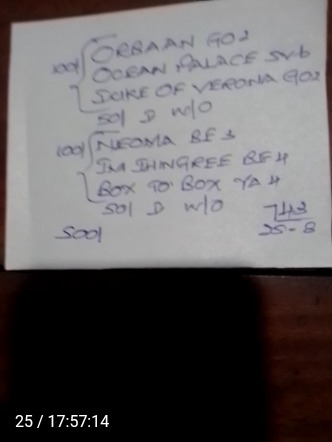 100/ ORBAAN GO2
OCEAN PALACE SU-6
DUKE OF VERONA GO2
50/ D W/O
100/ NEOMA BE3
IM SHINGREE BE4
BOX TO BOX YA4
50/ D W/O
500/
743
25-8
25 / 17:57:14